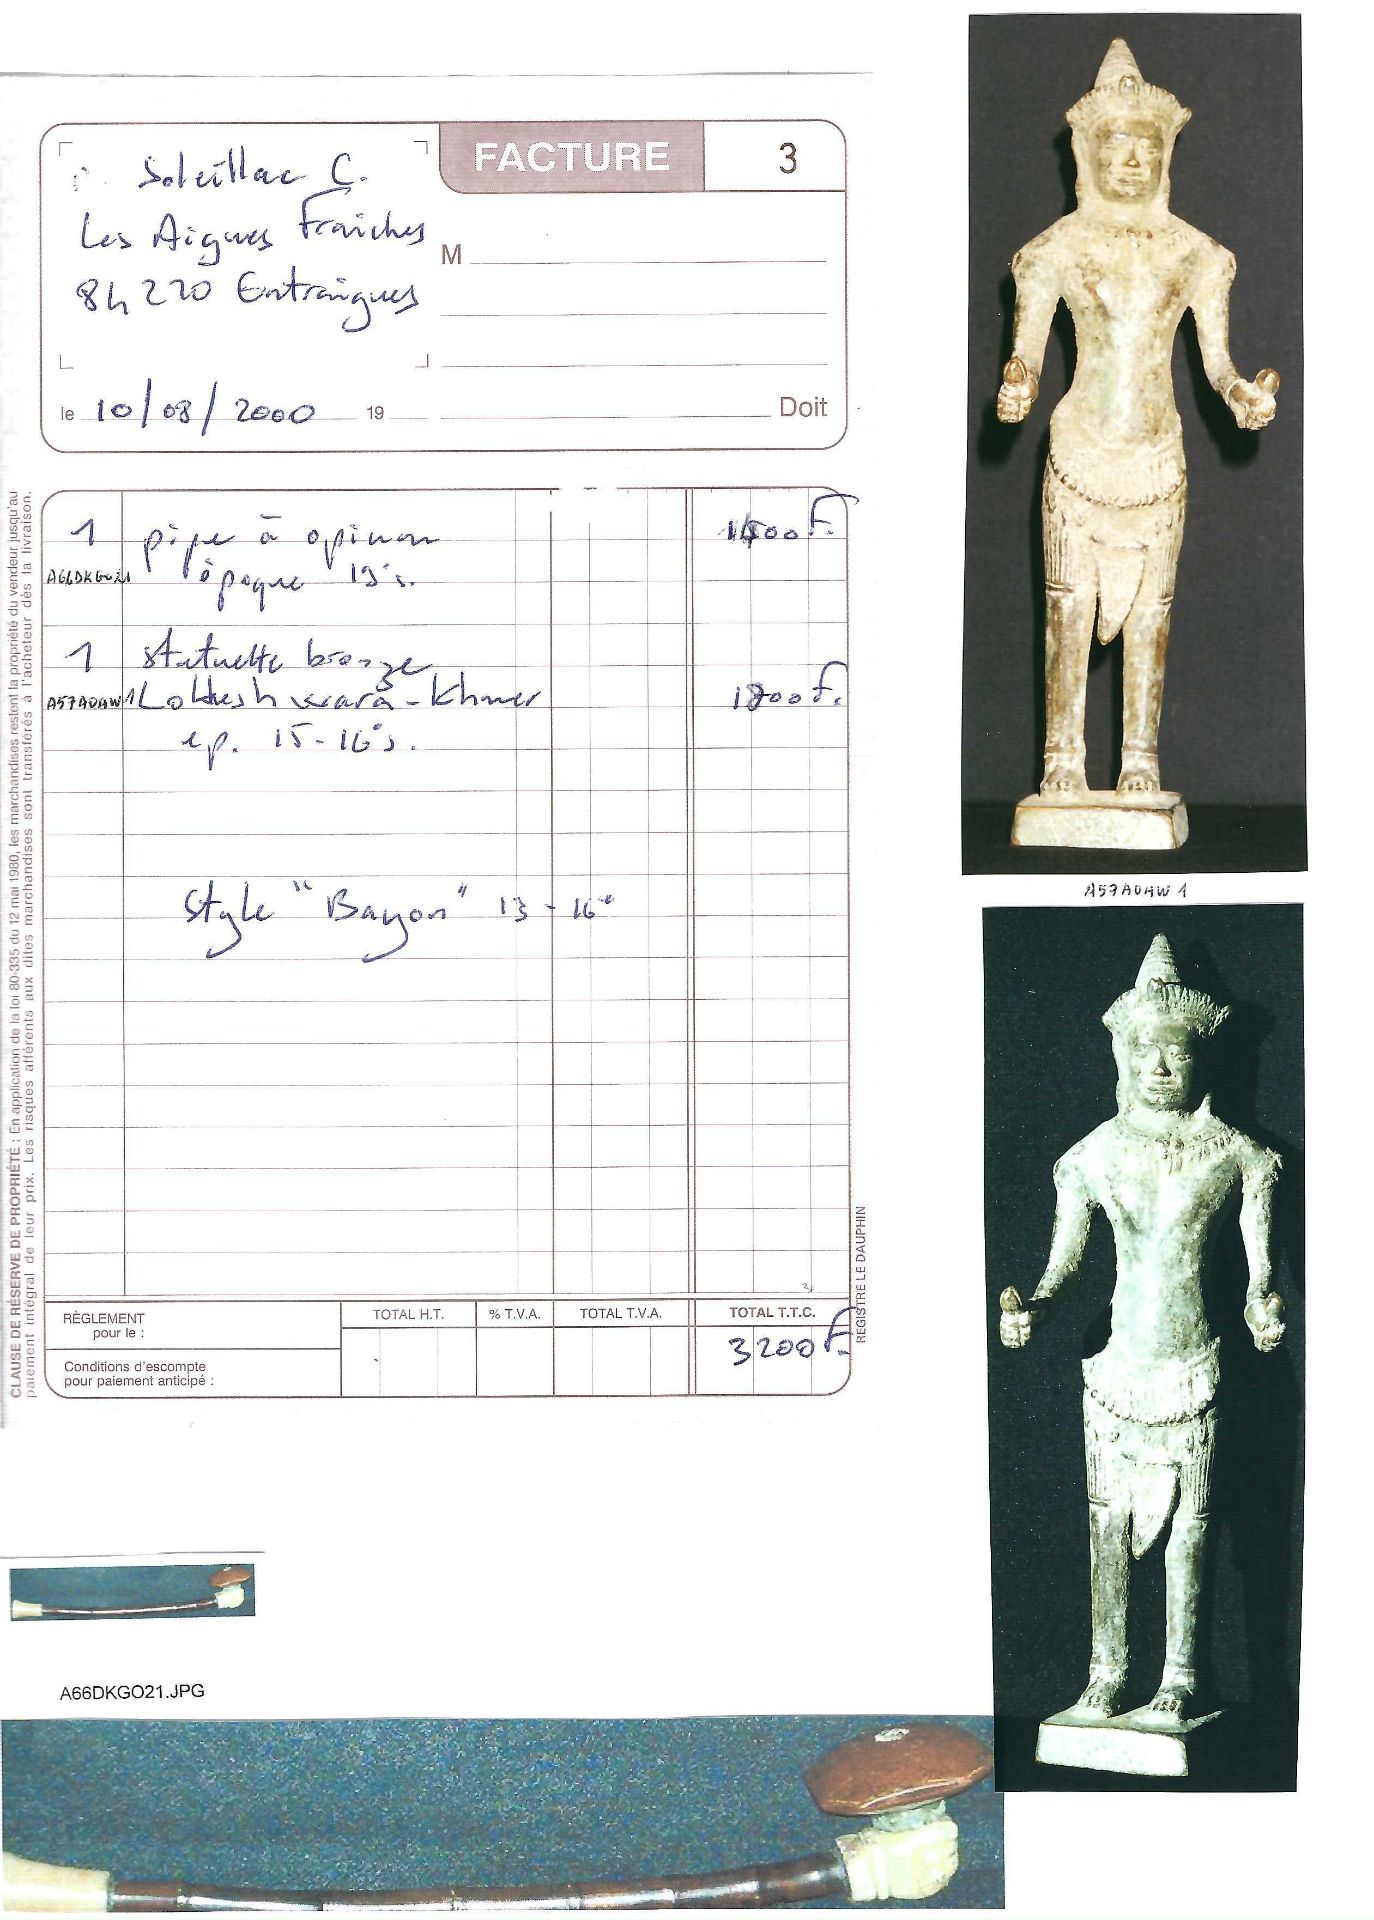 FACTURE 3
Soleillac C.
Les Aigues Fraîches
84 220 Entraigues
M
le 10/08/2000 19
Doit
1 pipe à opium 1400 F.
A66DKGO21 époque 19°s.
1 statuette bronze
A57AOAW1 Lokeshwara - Khmer 1800 F.
ep. 15-16°s.
Style "Bayon" 13-16e
RÈGLEMENT
pour le :
TOTAL H.T. % T.V.A. TOTAL T.V.A. TOTAL T.T.C.
3200 F.
Conditions d'escompte
pour paiement anticipé :
CLAUSE DE RÉSERVE DE PROPRIÉTÉ : En application de la loi 80-335 du 12 mai 1980, les marchandises restent la propriété du vendeur jusqu'au
paiement intégral de leur prix. Les risques afférents aux dites marchandises sont transférés à l'acheteur dès la livraison.
REGISTRE LE DAUPHIN
A57AOAW1
A66DKGO21.JPG